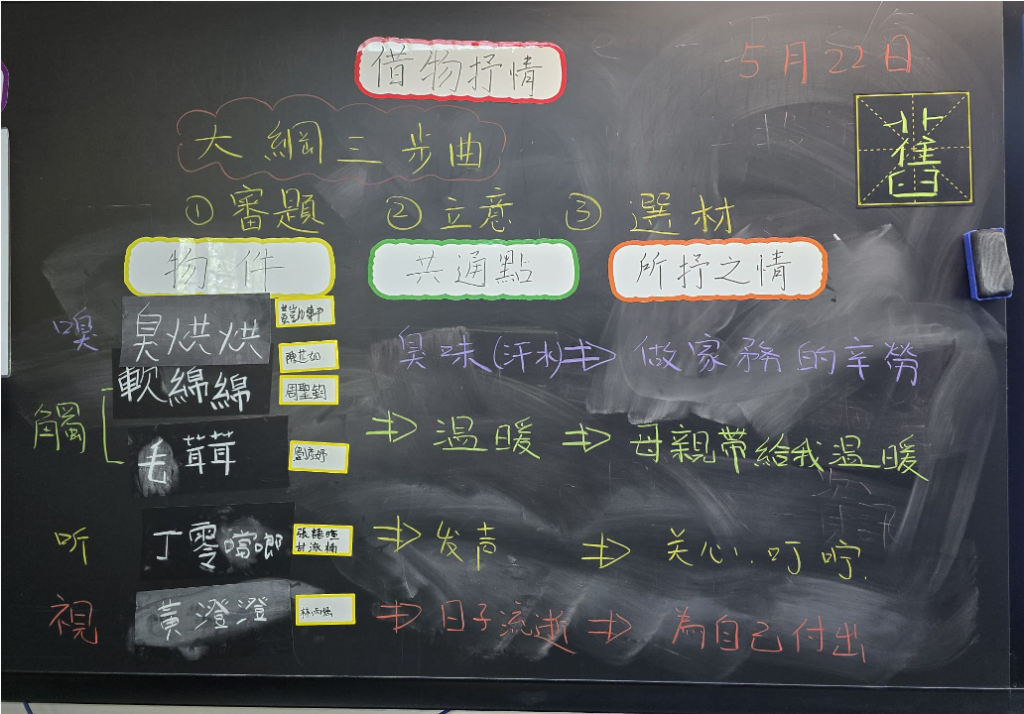 借物抒情
5月22日
大綱三步曲
舊
①審題 ②立意 ③選材
物件 共通點 所抒之情
嗅 臭烘烘 臭味(汗水)⇒ 做家務的辛勞
軟綿綿 周聖鈞
觸 ⇒ 溫暖 ⇒ 母親帶給我溫暖
毛茸茸
听 丁零噹啷 ⇒ 发声 ⇒ 关心.叮咛.
視 黃澄澄 ⇒ 日子流逝 ⇒ 為自己付出